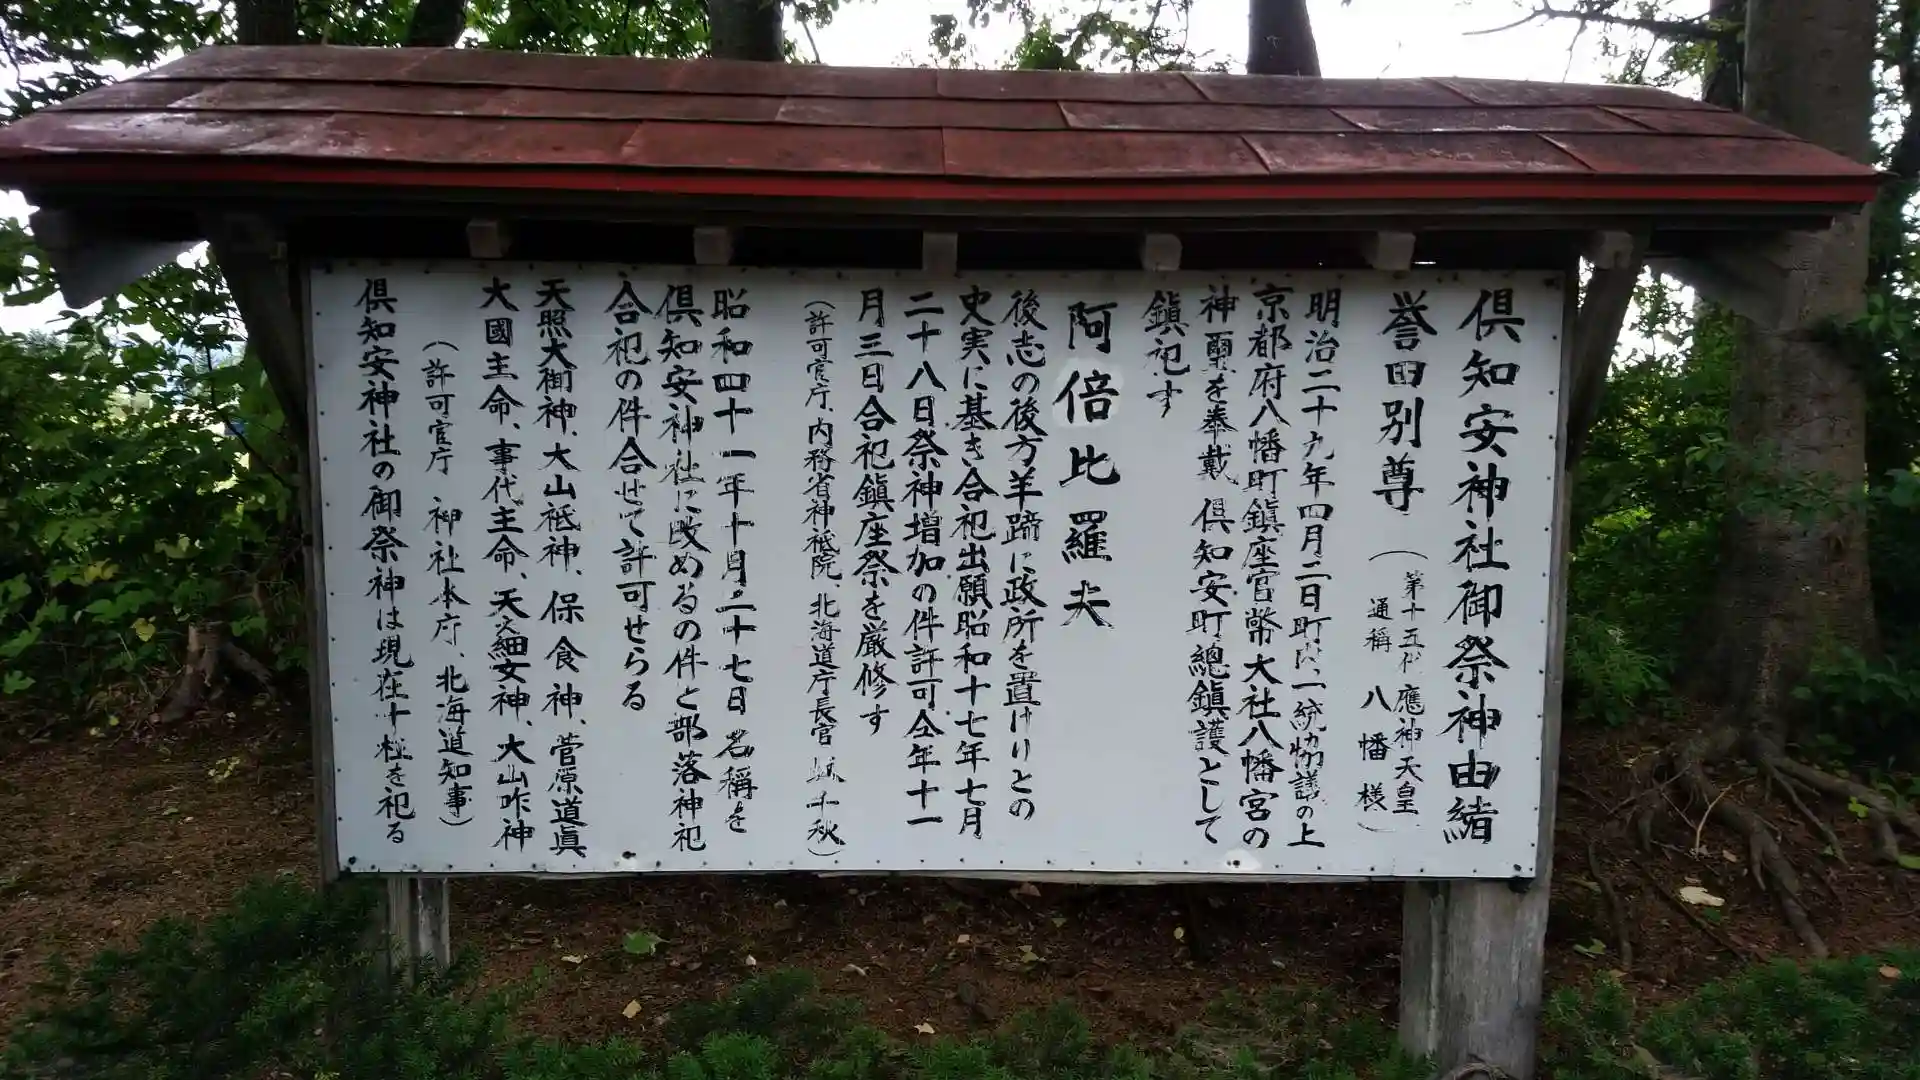 倶知安神社御祭神由緒
誉田別尊
（第十五代 應神天皇
通稱 八幡様）
明治二十九年四月二日町内一統協議の上
京都府八幡町鎮座官幣大社八幡宮の
神璽を奉戴 倶知安町總鎮護として
鎮祀す
阿倍比羅夫
後志の後方羊蹄に政所を置けりとの
史実に基き合祀出願昭和十七年七月
二十八日祭神増加の件許可仝年十一
月三日合祀鎮座祭を厳修す
（許可官庁、内務省神祇院、北海道庁長官 千秋）
昭和四十一年十月二十七日名稱を
倶知安神社に改めるの件と部落神祀
合祀の件合せて許可せらる
天照大御神、大山祗神、保食神、菅原道眞
大國主命、事代主命、天之細女神、大山咋神
（許可官庁 神社本庁、北海道知事）
倶知安神社の御祭神は現在十柱を祀る